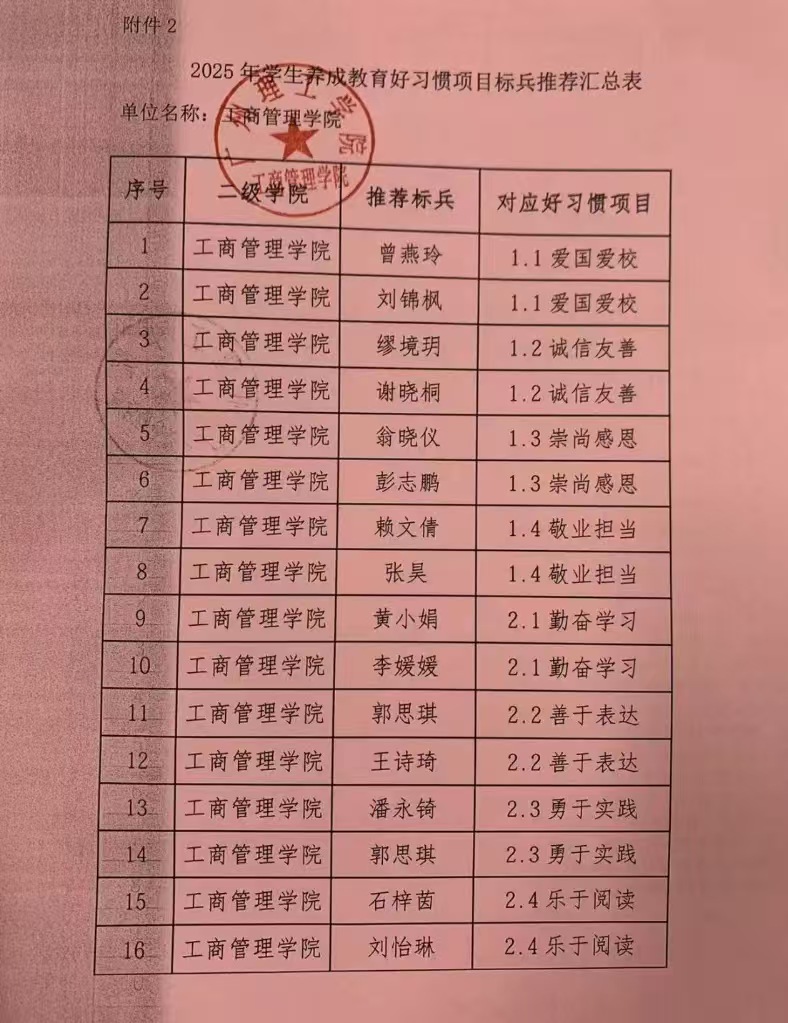 附件2
2025年学生养成教育好习惯项目标兵推荐汇总表
单位名称：工商管理学院
广州理工学院
工商管理学院
序号 二级学院 推荐标兵 对应好习惯项目
1 工商管理学院 曾燕玲 1.1爱国爱校
2 工商管理学院 刘锦枫 1.1爱国爱校
3 工商管理学院 缪境玥 1.2诚信友善
4 工商管理学院 谢晓桐 1.2诚信友善
5 工商管理学院 翁晓仪 1.3崇尚感恩
6 工商管理学院 彭志鹏 1.3崇尚感恩
7 工商管理学院 赖文倩 1.4敬业担当
8 工商管理学院 张昊 1.4敬业担当
9 工商管理学院 黄小娟 2.1勤奋学习
10 工商管理学院 李媛媛 2.1勤奋学习
11 工商管理学院 郭思琪 2.2善于表达
12 工商管理学院 王诗琦 2.2善于表达
13 工商管理学院 潘永锜 2.3勇于实践
14 工商管理学院 郭思琪 2.3勇于实践
15 工商管理学院 石梓茵 2.4乐于阅读
16 工商管理学院 刘怡琳 2.4乐于阅读